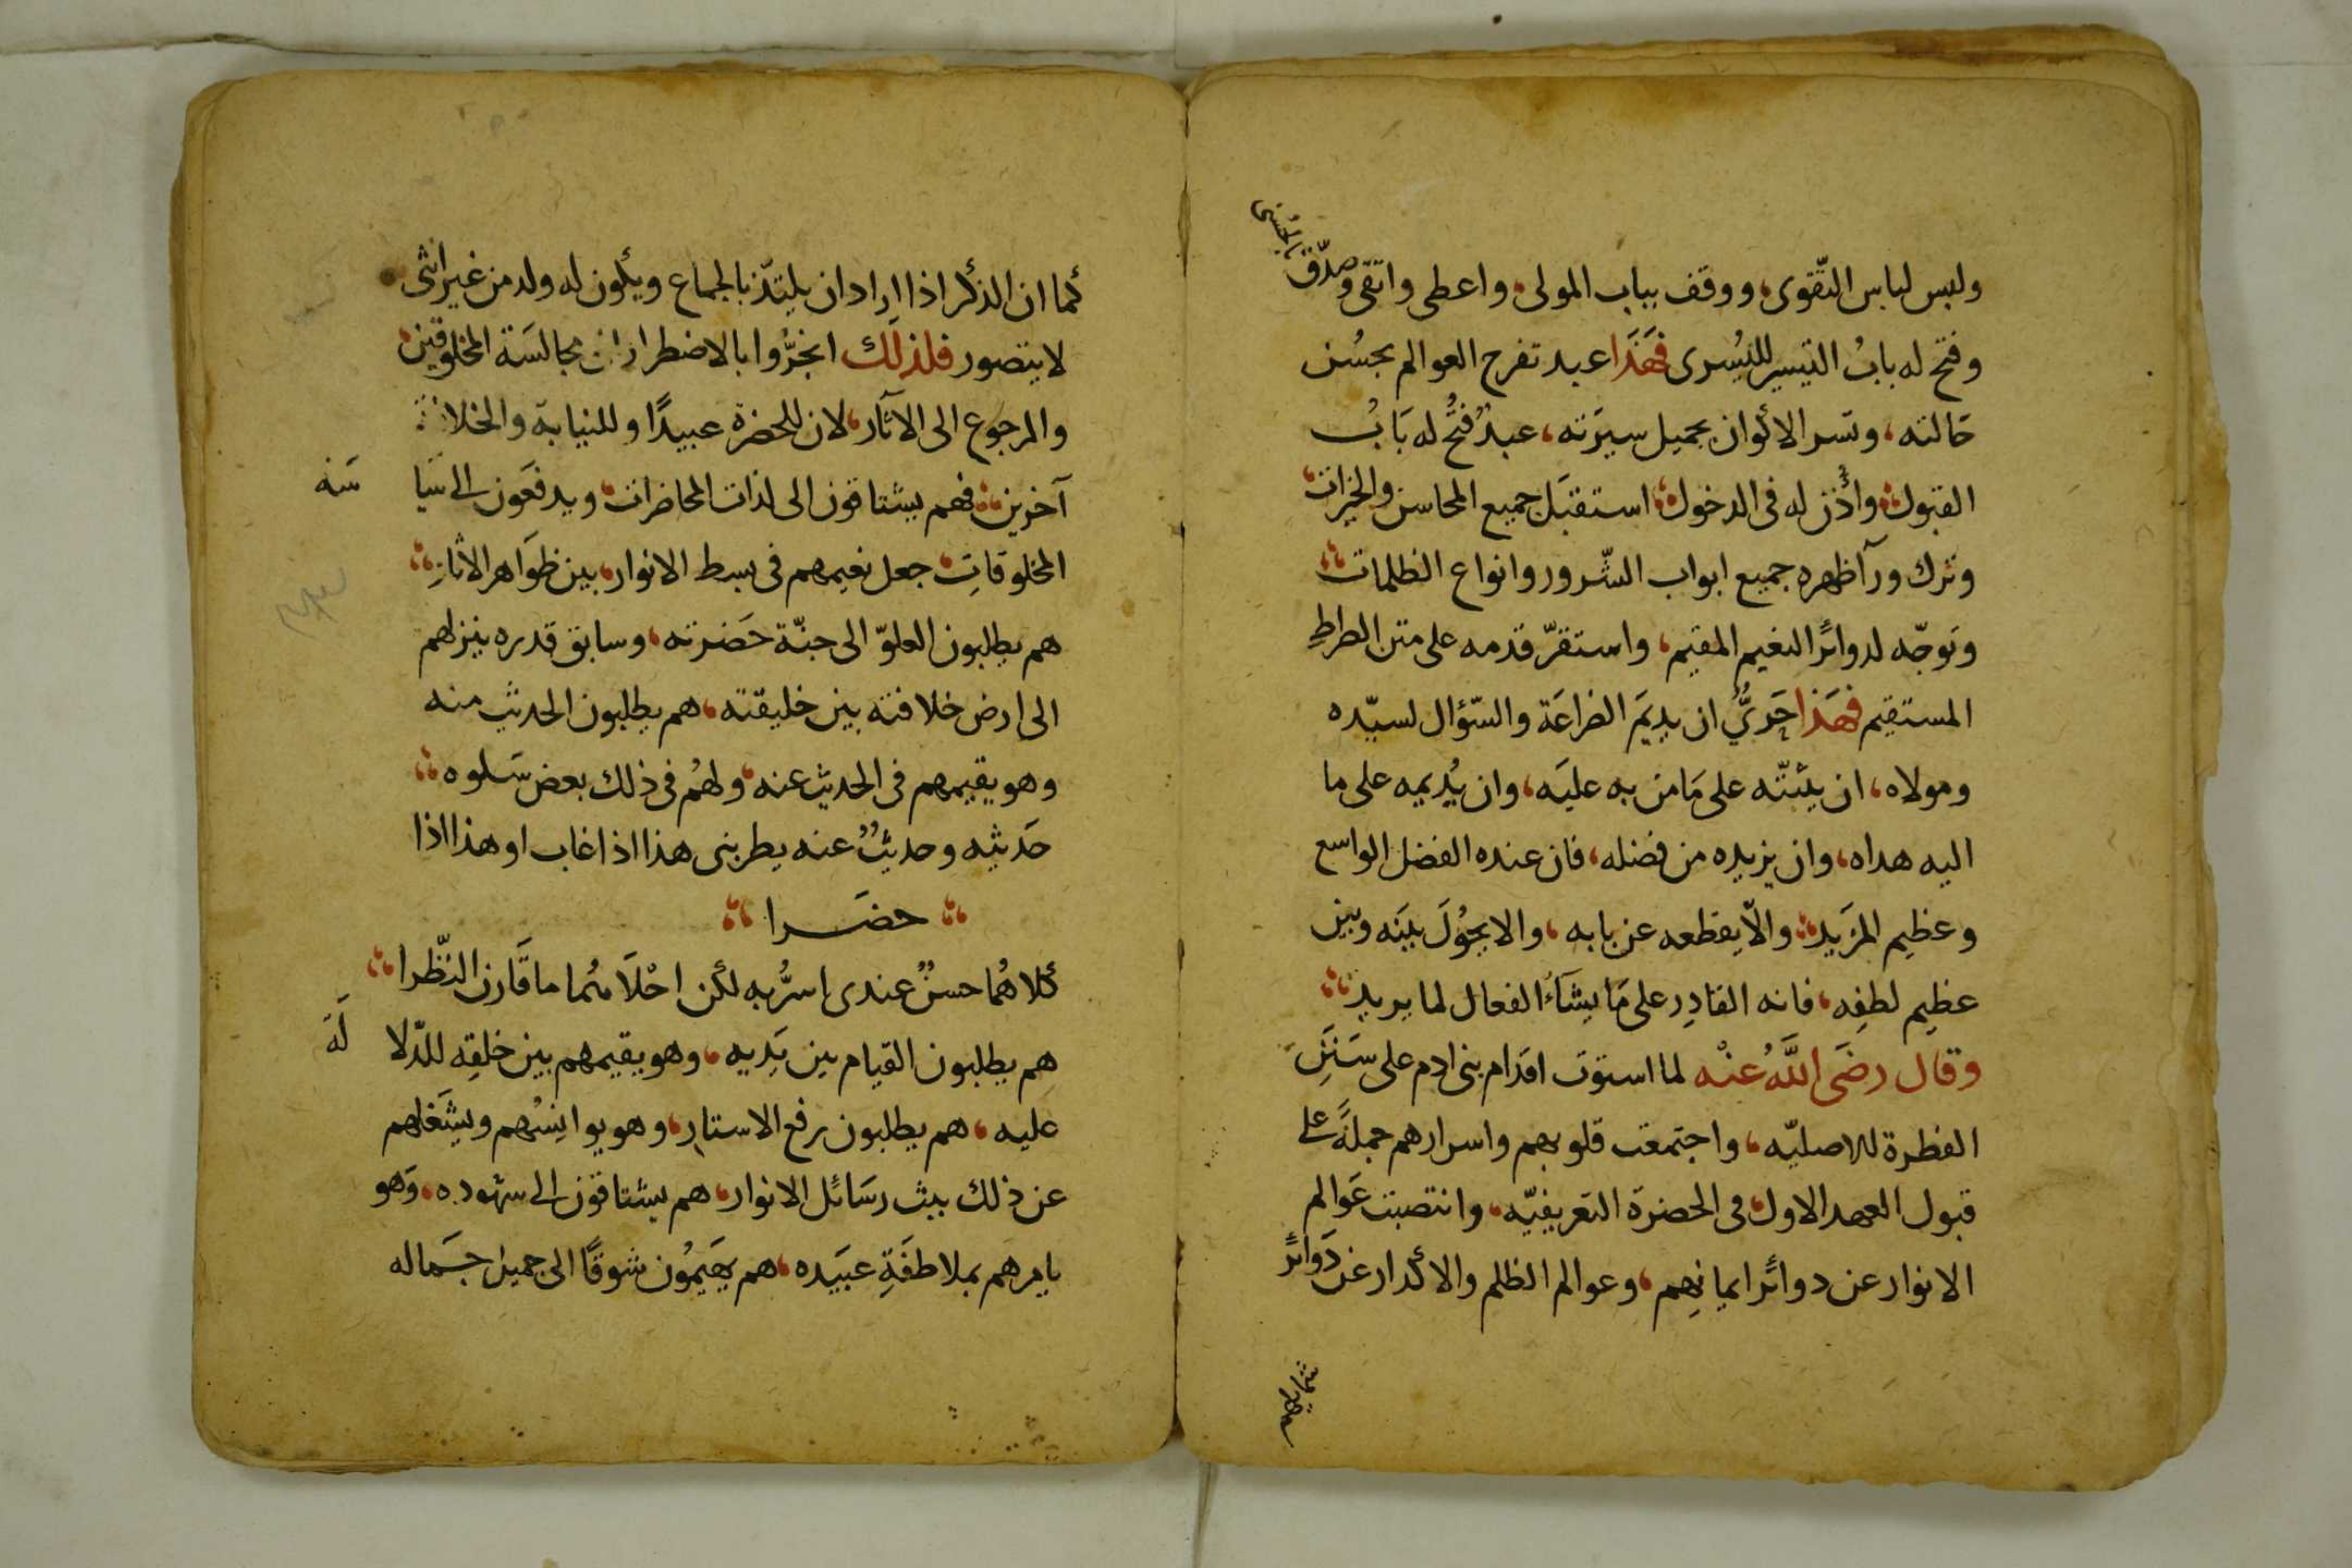 ولبس لباس التّقوى، ووقف بباب المولى، واعطى واتقى وصدّق بالحسنى
وفتح له بابُ التيسير لليُسرى فهَذَا عبد تفرح العوالم بحسُن
حَالته، وتسر الاكوان بجميل سيرَته، عبدٌ فُتح له بَابُ
القبول، واُذن له فى الدخول، استقبَل جميع المحاسن والخيرات،
وترك ورآ ظهره جميع ابواب الشّرور وانواع الظلمات
وتوجّه لدوائر النعيم المقيم، واستقرّ قدمه على متن الصراط
المستقيم فهَذا حَريٌّ ان يديمَ الضراعَة والسّؤال لسيّده
ومولاه، ان يثبّته على مَا من به عليَه، وان يُديمه على ما
اليه هداه، وان يزيده من فضله، فان عنده الفضل الواسع
وعظيم المزَيد، والّا يقطعه عن بابه، والا يحُولَ بيَنه وبين
عظيم لطفِه، فانه القادِر على مَا يشَآءُ الفعال لما يريد
وقال رضَى اللَّهُ عنْه لما استوَت اقدَام بنى ادم على سَنَنِ
الفطرة للاصليّه، واجتمعت قلوبهم واسرارهم جملةً على
قبول العهد الاول، فى الحضرة التعريفيّه، وانتصبت عَوالم
الانوار عن دوائر ايمانِهم، وعوالم الظلم والاكدار عن دَوائر
شمايلهم
كما ان الذكر اذا اراد ان يلتذّ بالجماع ويكون له ولد من غير انثى
لا يتصور فلذلك انجرُّوا بالاضطرار الى مجالسَة المخلوقين،
والرجوع الى الآثار، لان للحضرة عبيدًا وللنيابة والخلافة
آخرين، فهم يشتاقون الى لذات المحاضرات، ويدفعَون الى سَياسَة
المخلوقاتِ، جعل نعيمهم فى بسط الانوار، بين ظوَاهر الاثارِ
هم يطلبون العلوّ الى جنّة حَضرته، وسابق قدره ينزلهم
الى ارض خلافته بين خليقته، هم يطلبون الحديث منه
وهو يقيمهم فى الحديث عنه، ولهُم فى ذلك بعض سَلوه
حَديثه وحديثٌ عنه يطربنى هذا اذا غاب او هذا اذا
حضَرا
كلاهُما حسنٌ عندى اسرُّ به لكن احْلَاهُما ما قَارن النّظرا
هم يطلبون القيام بين يَديه، وهو يقيمهم بين خلقِه للدّلالَة
عليه، هم يطلبون رفع الاستار، وهو يوانِسُهم ويشَغلهم
عن ذلك ببث رسَائل الانوار، هم يشتاقون الى شهوده، وَهو
يامرهم بملاطفَةِ عبَيده، هم يهَيمُون شوقًا الى جميل جَماله